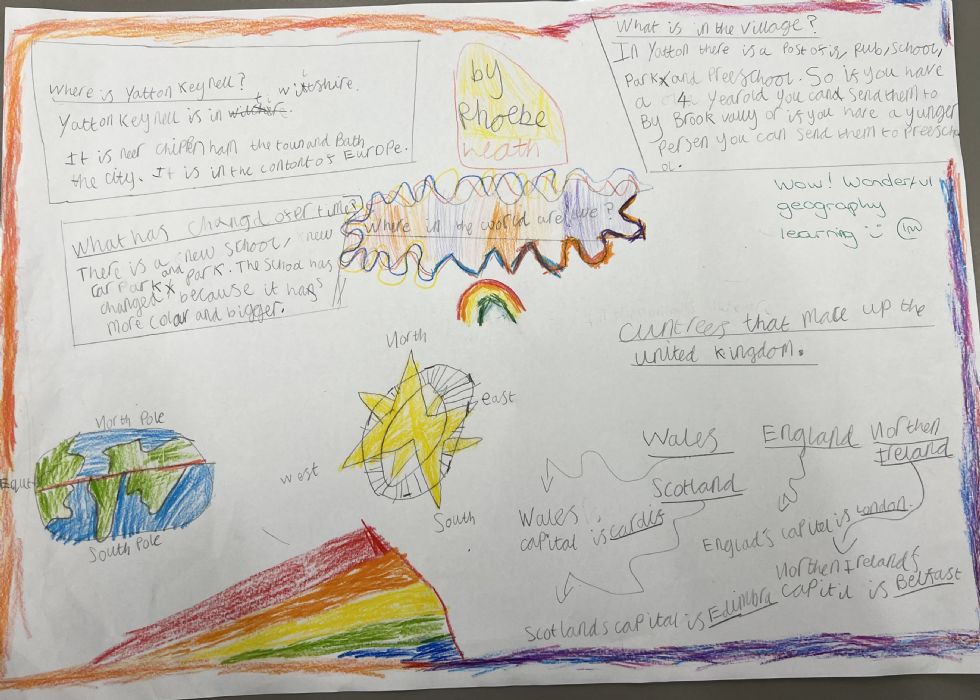 Where is Yatton Keynell?
Yatton Keynell is in wiltshire.
It is neer chippnham the toun and Bath
the city. It is in the contont of Europe.
by
Phoebe
heath
What is in the village?
In Yatton there is a Post ofis, Pub, school,
Park and Preeschool. So if you have
a 4 year old you cand send them to
By Brook vally or if you have a yunger
Persen you can send them to Preescho
ol.
Wow! Wonderful
geography
learning
What has changd ofer time?
There is a new school, new
car Park and park. The school has
changed because it has
more colour and bigger.
Where in the world are we?
cuntrees that make up the
united kingdom.
North
east
South
west
North Pole
Equt
South Pole
Wales
England
Northen
Ireland
Scotland
Wales
capital is cardif
Englads capital is London.
Northen Irelands
capitil is Belfast
Scotlands capital is Edinbra